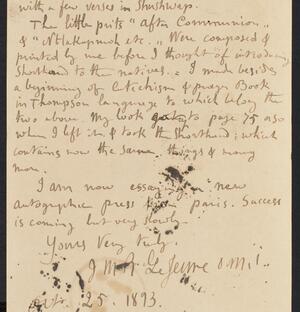 with a few verses in Shushwap.
The little prits "After Communion"
& "Ntlakapmoh etc." Were composed &
printed by me before I thought of introducing
Shorthand to the natives. I made besides
a beginning of Catechism & prayer Book
in Thompson language to which belong the
two above. My book to page 75 also
when I left it & took the Shorthand: which
contains now the same things & many
more.
I am now essaying a new
autographic press from paris. Success
is coming but very slowly.
Yours Very truly.
J M R Le Jeune O.M.I.
25. 1893.